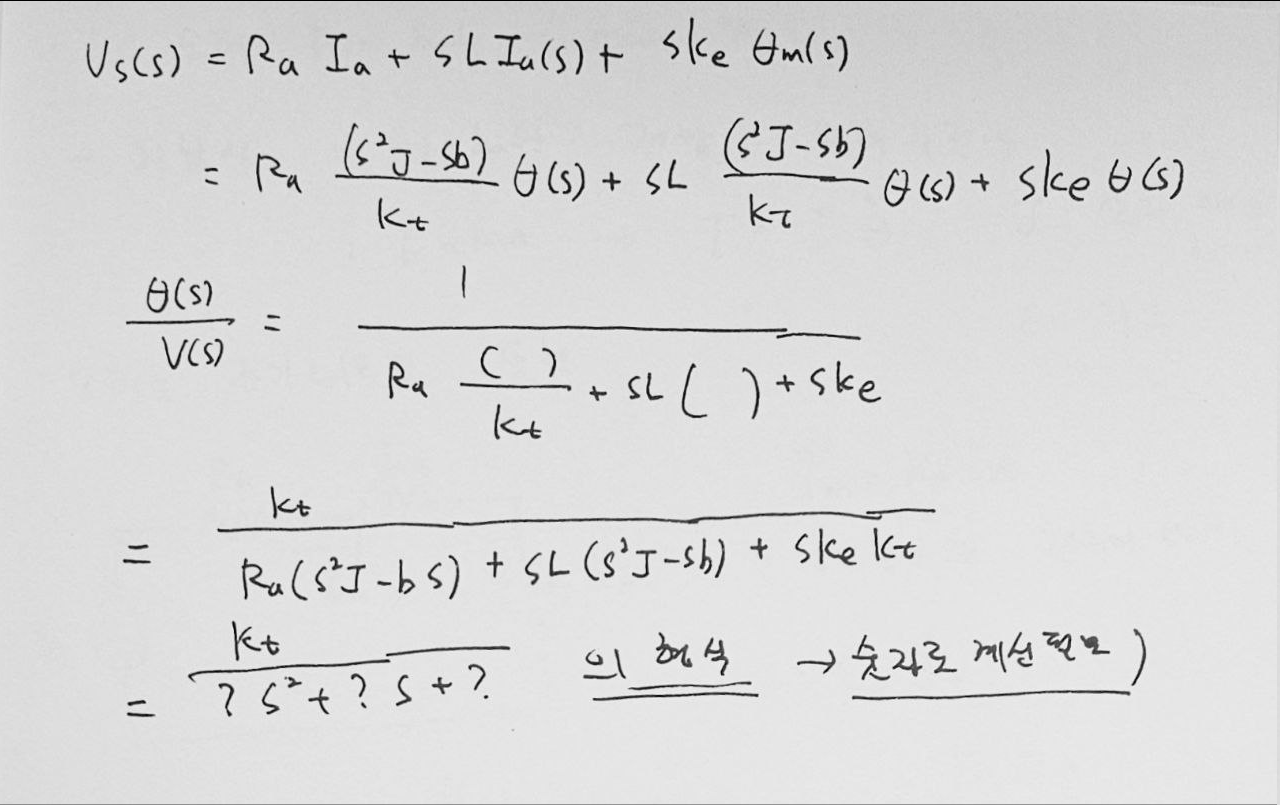 Vs(s) = Ra Ia + sLIa(s) + ske θm(s)
= Ra (s²J-sb)/kt θ(s) + sL (s²J-sb)/kτ θ(s) + ske θ(s)
θ(s)/V(s) = 1/(Ra ( )/kt + sL ( ) + ske)
= kt/(Ra(s²J-bs) + sL(s²J-sb) + ske kt)
= kt/(? s² + ? s + ?) 의 해석 → 숫자로 계산 필요)